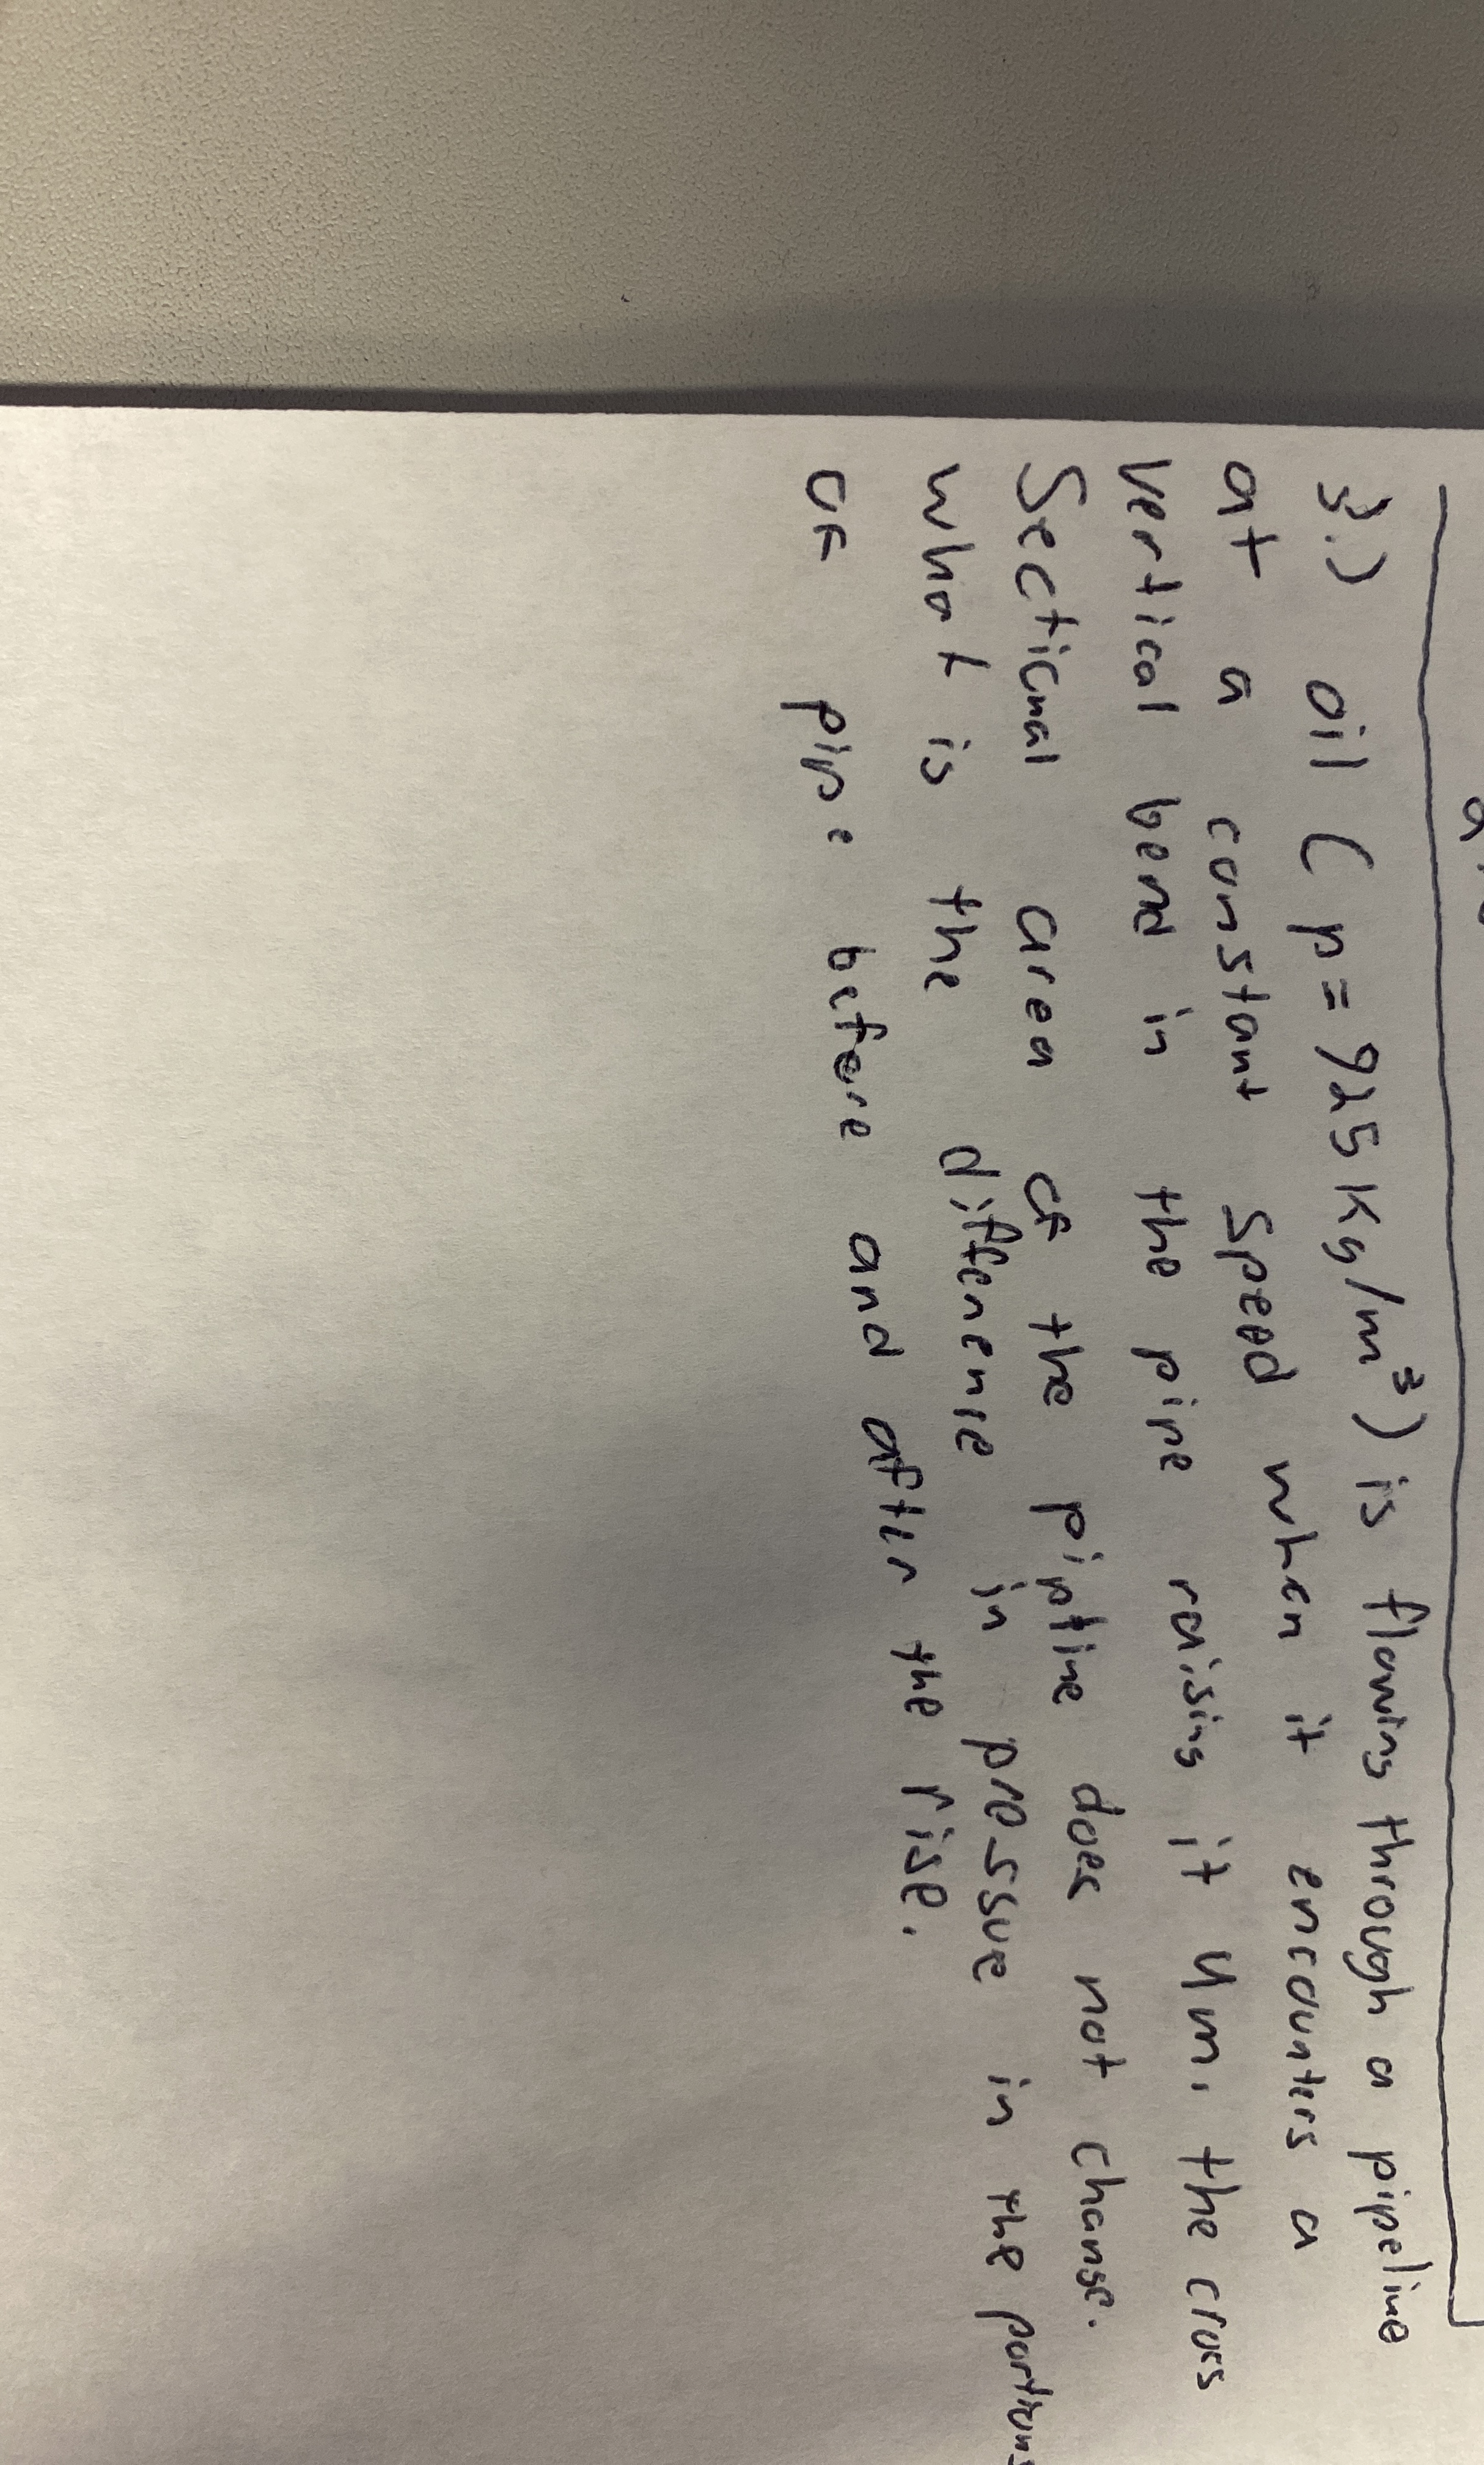 3.) oil (p = 925 Kg/m³) is flowing through a pipeline
at a constant speed when it encounters a
vertical bend in the pipe raising it 4m. the cross
Sectional area of the pipline does not change.
what is the diffenence in pressue in the portions
of pipe before and after the rise.